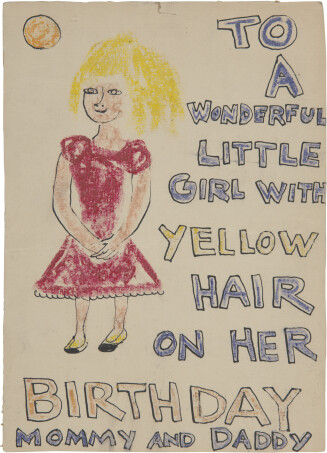 TO
A
WONDERFUL
LITTLE
GIRL WITH
YELLOW
HAIR
ON HER
BIRTHDAY
MOMMY AND DADDY